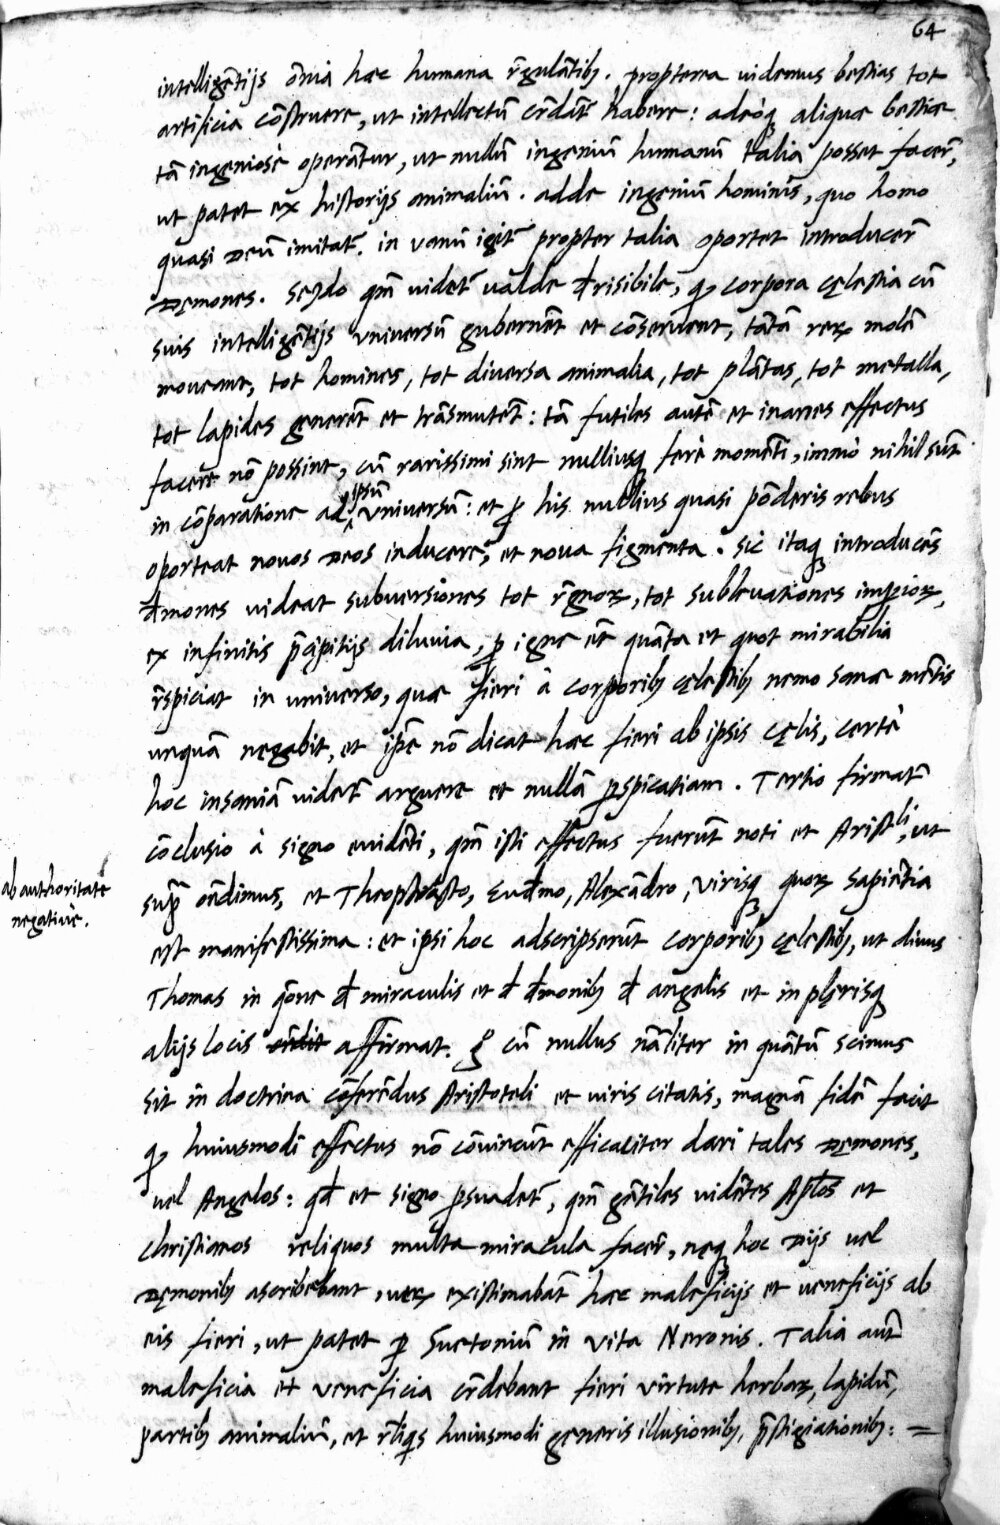 64
intelligētijs oīa hæc humana r̄gulātib9. propterea uidemus bestias tot
artificia cōstruere, ut intellectū cr̄dāt̄ habere: adeoq̨ aliquæ bestiæ
tā ingeniosè operātur, ut nullū ingeniū humanū talia posset facer̄,
ut patet ex historijs animaliū. adde ingeniū hominis, quo homo
quasi Deū imitat̄. in vanū igit̄ propter talia oportet introducer̄
Dęmones. Secūdo qm̄ uidet̄ ualde đrisibile, q̨ corpora cęlestia cū
suis intelligētijs vniversū gubernēt et cōseruent, tātā reꝝ molē
moveant, tot homines, tot diuersa animalia, tot plātas, tot metalla,
tot lapides generēt et trāsmutēt: tā futiles autē et inanes effectus
facere nō possint, cū rarissimi sint nulliusq̨ ferè momēti, immò nihil sūt
in cōparatione ad ipsū vniversū: et ꝑ his nullius quasi pōderis rebus
oporteat nouos Deos inducere, et noua figmenta. Sic itaq̨ introducēs
đmones uideat subuersiones tot r̄gnoꝝ, tot subleuationes impioꝝ,
ex infinitis p̄cipitijs diluuia, ꝑ igne et̄ quāta et quot mirabilia
r̄spiciat in uniuerso, quæ fieri à corporib9 cęlestib9 nemo sanæ mētis
unquā negabit, et ip̄e nō dicat hæc fieri ab ipsis cęlis, certè
hoc insaniā uidet̄ arguere et nullā ꝑspicatiam. Tertio firmat̄
cōclusio à signo euidēti, qm̄ isti effectus fuerūt noti et Aristli, ut
sup̄ ondimus, et Theophrasto, Euđmo, Alexādro, virisq̨ quoꝝ sapiētia
est manifestissima: et ipsi hoc adscripserūt corporib9 cęlestib9, ut diuus
ab authoritate
negatiuè.
Thomas in q̄one đ miraculis et đ đmonib9 đ angelis et in plęrisq̨
alijs locis affirmat. g° cū nullus nāliter in quātū scimus
sit in doctrina cōferēdus Aristoteli et uiris citatis, magnā fidē facit
q̨ huiusmodi effectus nō cōuincūt efficaciter dari tales Dęmones,
uel Angelos: qđ et signo ꝑsuadet̄, qm̄ gētiles uidētes Aplos et
christianos reliquos multa miracula facer̄, neq̨ hoc Dijs uel
Dęmonib9 ascribebant, ueꝝ existimabāt hæc maleficijs et ueneficijs ab
eis fieri, ut patet ꝑ Suetoniū in vita Neronis. Talia aut̄
maleficia et veneficia cr̄debant fieri virtute herbaꝝ, lapidū,
partib9 animaliū, et r̄liq̄s huiusmodi generis illusionib9, p̄stigiationib9: =